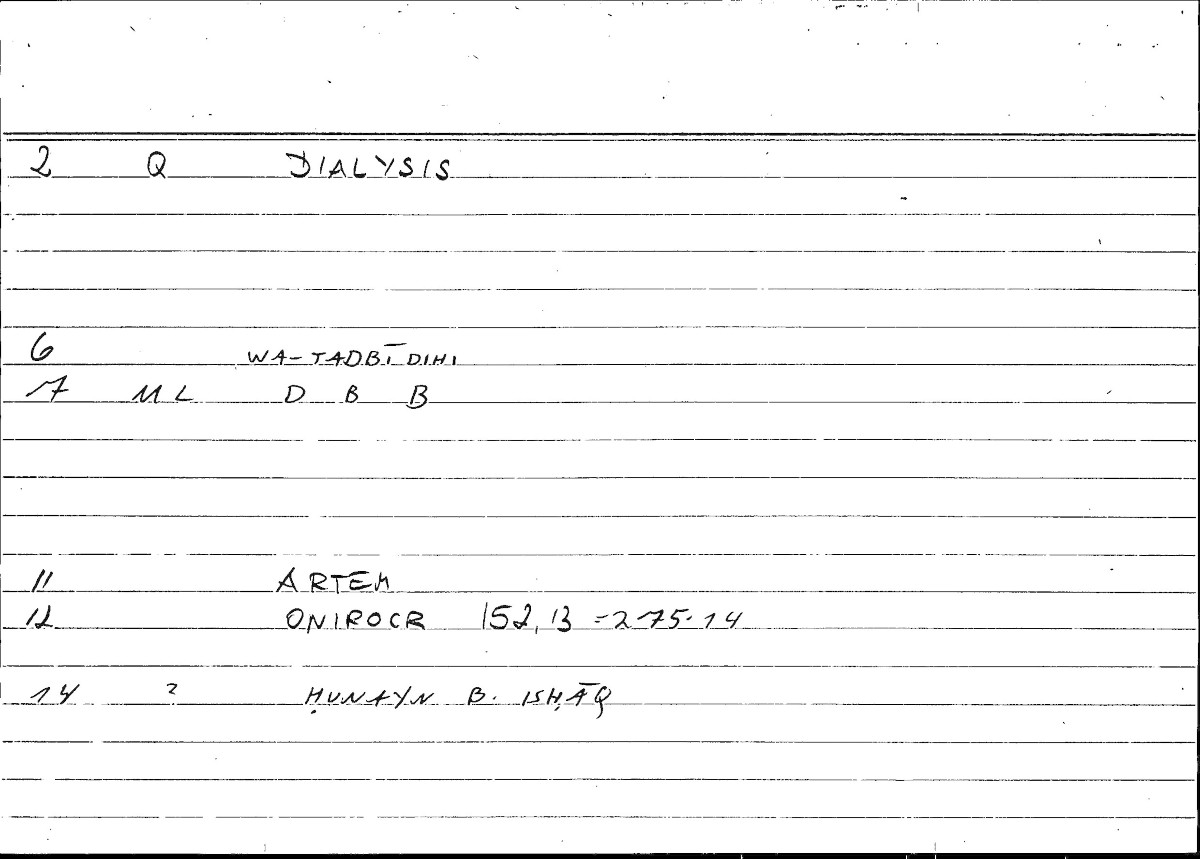 2 Q DIALYSIS
6 WA-TADBĪDIHI
7 ML D B B
11 ARTEM
12 ONIROCR 152,13 = 275.14
14 2 ḤUNAYN B. ISḤĀQ